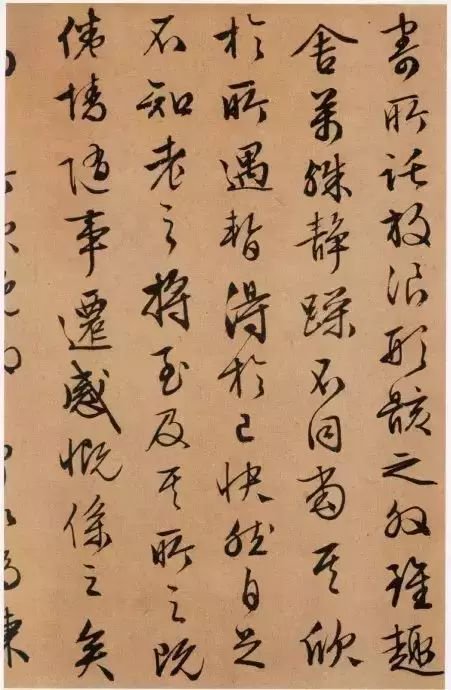 寄所託放浪形骸之外雖趣
舍萬殊靜躁不同當其欣
於所遇暫得於己快然自足
不知老之將至及其所之既
倦情隨事遷感慨係之矣